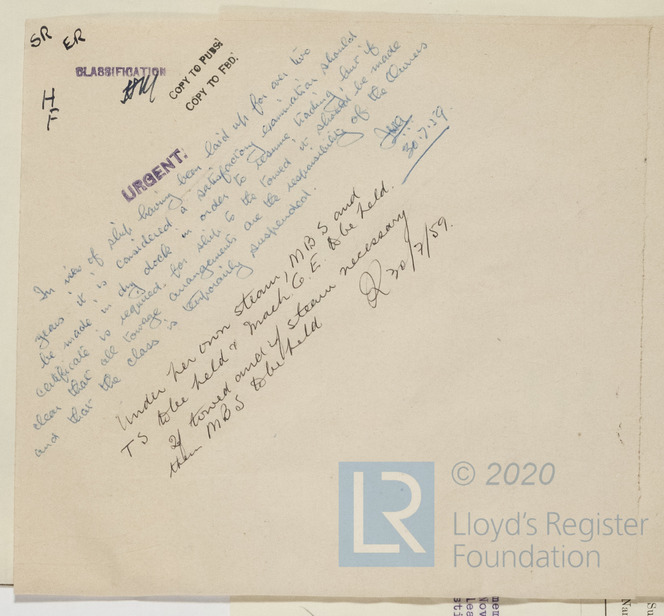 SR ER
CLASSIFICATION
COPY TO PUBSN
COPY TO FBD.
H
F
URGENT.
In view of ship having been laid up for over two
years it is considered a satisfactory examination should
be made in dry dock in order to resume trading, but if
certificate is required for ship to be towed it should be made
clear that all towage arrangements are the responsibility of the Owners
and that the class is temporarily suspended.
30.7.59.
Under her own steam, MBS and
TS to be held & Mach G.E. to be held.
If towed and if steam necessary
then MBS to be held
30/7/59.
© 2020
LR
Lloyd's Register
Foundation